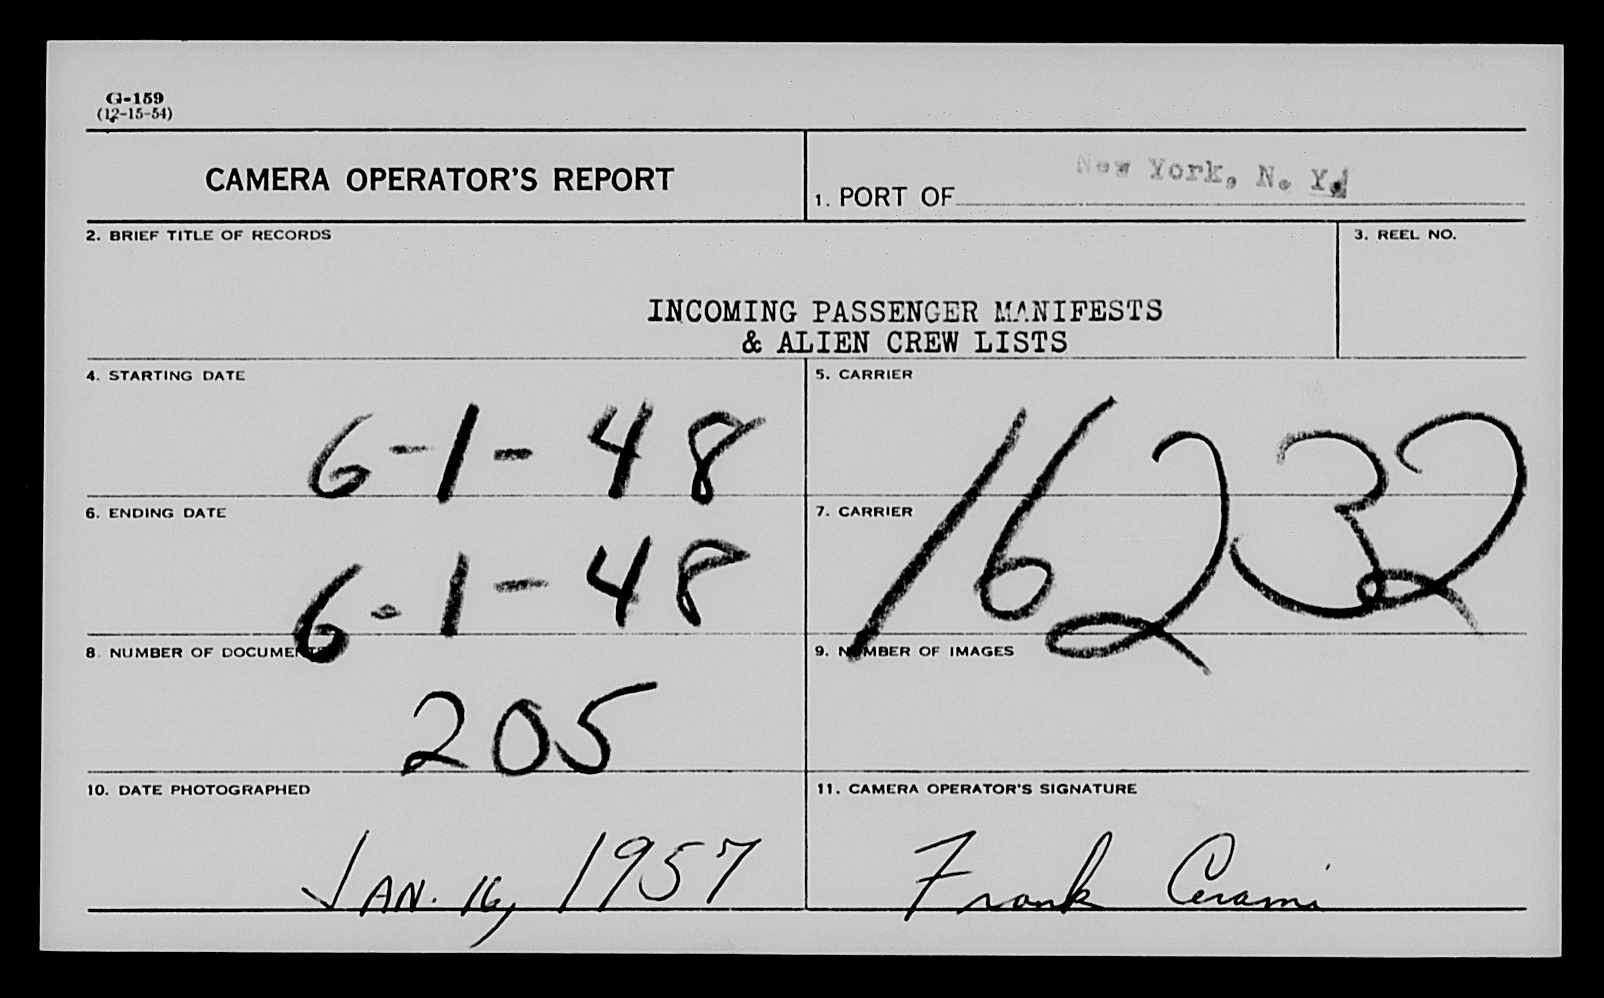 G-159
(12-15-54)
CAMERA OPERATOR'S REPORT
1. PORT OF New York, N. Y.
2. BRIEF TITLE OF RECORDS
3. REEL NO.
INCOMING PASSENGER MANIFESTS
& ALIEN CREW LISTS
4. STARTING DATE
6-1-48
5. CARRIER
16232
6. ENDING DATE
6-1-48
7. CARRIER
8. NUMBER OF DOCUMENTS
205
9. NUMBER OF IMAGES
10. DATE PHOTOGRAPHED
JAN. 16, 1957
11. CAMERA OPERATOR'S SIGNATURE
Frank Cerami